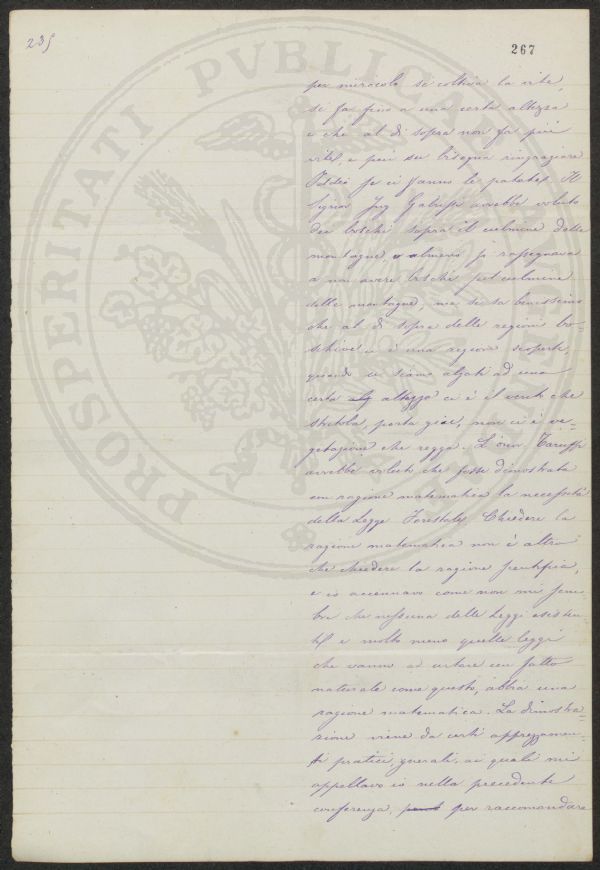 235
267
PROSPERITATI PVBLICAE
per miracolo si coltiva la vite,
si fa fino a una certa altezza
e che al di sopra non fa più
vite, e più su bisogna ringraziare
Iddio se ci fanno le patate. Il
Signor Ing. avrebbe voluto
dei boschi sopra il culmine delle
montagne, o almeno si rassegnava
a non avere boschi sul culmine
delle montagne, ma si sa benissimo
che al di sopra delle regioni bo-
schive vi è una regione scoperta,
quando ci siamo alzati ad una
certa alg altezza ci è il vento che
porta giù, non ci è ve-
getazione che regga. L'onor.
avrebbe voluto che fosse dimostrata
con ragione matematica la necessità
della Legge Forestale. Chiedere la
ragione matematica non è altro
che chiedere la ragione scientifica,
e io accennavo come non mi sem-
bra che nessuna delle Leggi esisten-
ti e molto meno quelle leggi
che vanno ad urtare un fatto
naturale come questo, abbia una
ragione matematica. La dimostra-
zione viene da certi apprezzamen-
ti pratici, ai quali mi
appellavo io nella precedente
conferenza, per raccomandare